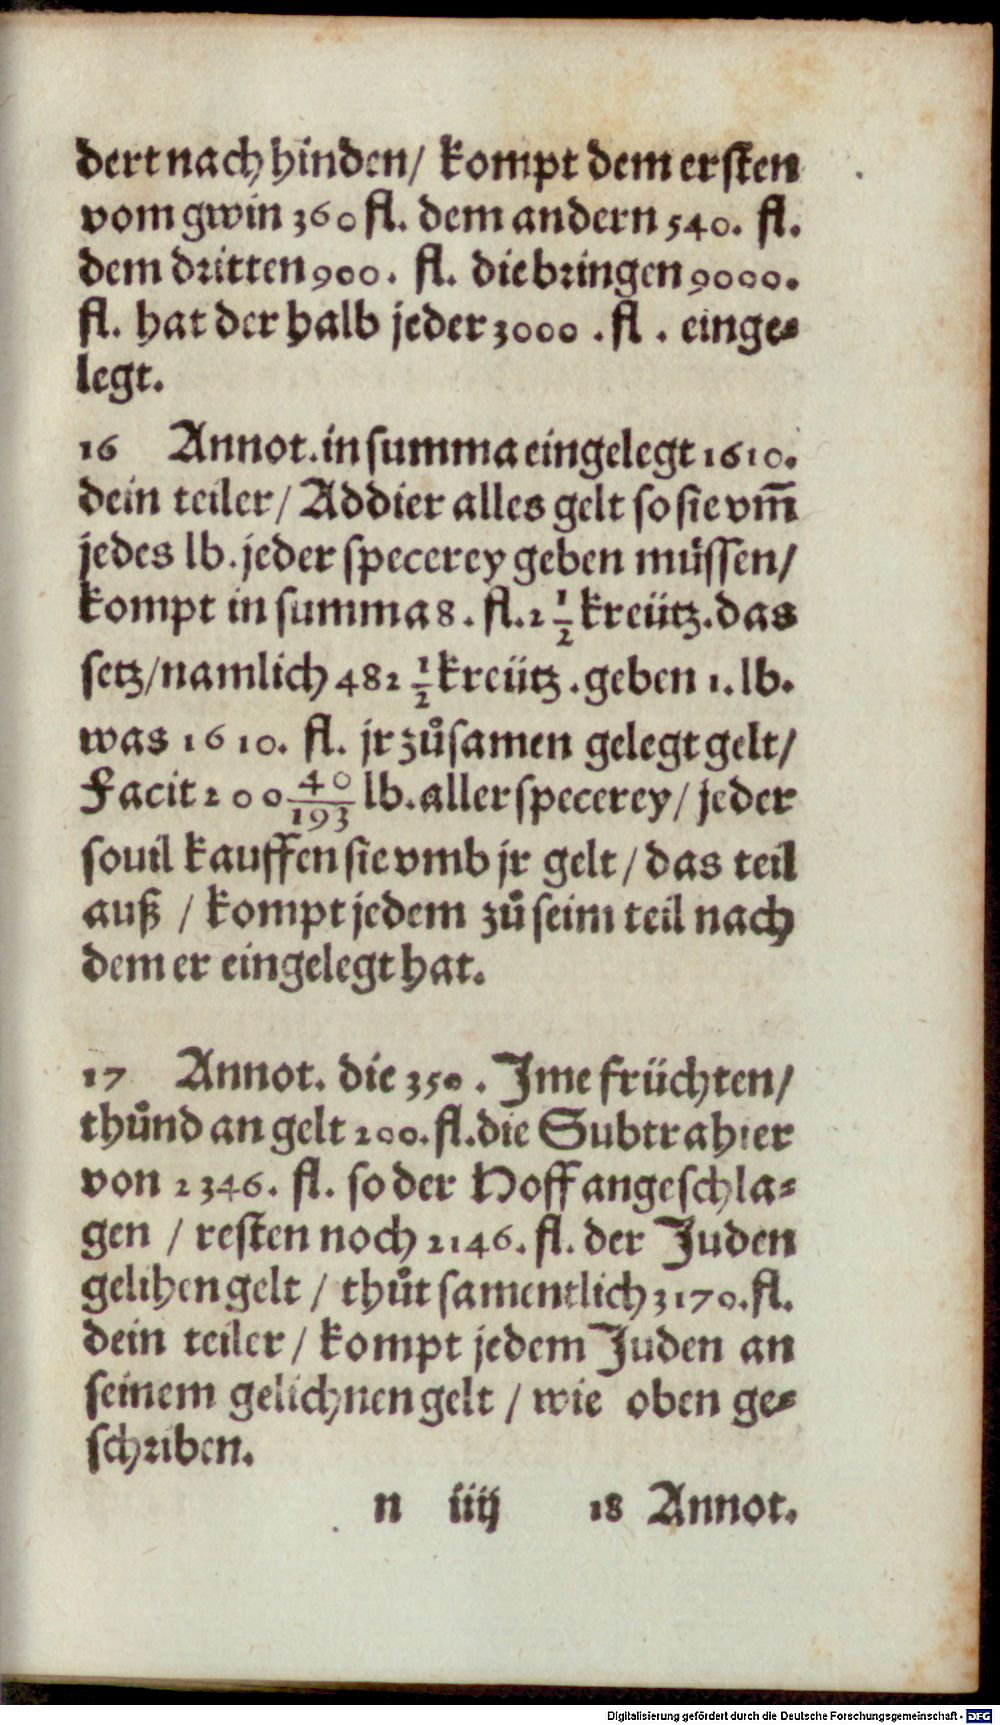 dert nach hinden/ kompt dem ersten
vom gwin 360 fl. dem andern 540. fl.
dem dritten 900. fl. die bringen 9000.
fl. hat der halb jeder 3000 . fl . einge⸗
legt.
16 Annot. in summa eingelegt 1610.
dein teiler/ Addier alles gelt so sie vm̄
jedes lb. jeder specerey geben müssen/
kompt in summa 8. fl. 2 1/2 kreütz. das
setz/ namlich 482 1/2 kreütz . geben 1. lb.
was 1610. fl. jr zůsamen gelegt gelt/
Facit 200 40/193 lb. aller specerey/ jeder
souil kauffen sie vmb jr gelt / das teil
auß / kompt jedem zů seim teil nach
dem er eingelegt hat.
17 Annot. die 350 . Jme früchten/
thůnd an gelt 200. fl. die Subtrahier
von 2346. fl. so der Hoff angeschla⸗
gen / resten noch 2146. fl. der Juden
gelihen gelt / thůt samentlich 3170. fl.
dein teiler / kompt jedem Juden an
seinem gelichnen gelt / wie oben ge⸗
schriben.
n iiij 18 Annot.
Digitalisierung gefördert durch die Deutsche Forschungsgemeinschaft - DFG